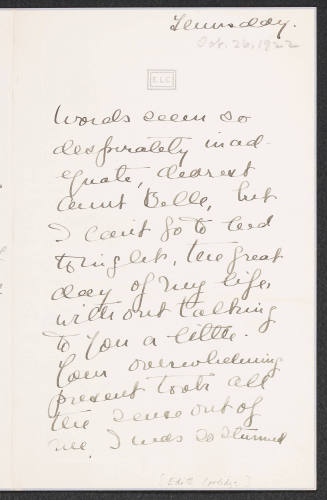 Thursday.
Oct. 26, 1922
E.L.C.
Words seem so
desperately inad-
equate, dearest
Aunt Belle, but
I can't go to bed
tonight, the great
day of my life,
without talking
to you a little.
Your overwhelming
present took all
the sense out of
me. I was so stunned
[Edith